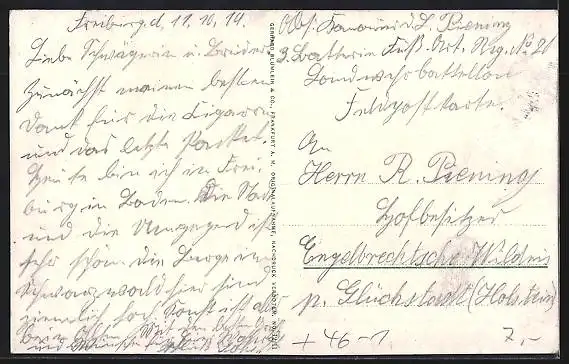 Freiburg, d. 11. 10. 14.
Liebe Schwägerin u. Bruder
Zunächst meinen besten
Dank für die Cigarren
und das letzte Packet.
Heute bin ich in Frei-
burg in Baden. Die Stadt
und die Umgegend ist
sehr schön. Die Berge im
Schwarzwald hier sind
ziemlich hoch. Sonst ist alles
beim Alten. Mit den besten
GEBRÜDER & CO., FRANKFURT A. M. NACHDRUCK VERBOTEN
Abs: Kanonier d. L. Piening
3. Batterie Fuß. Art. Reg. No 20
Landwehrbattellon
Feldpostkarte.
An
Herrn R. Piening
Hofbesitzer
Engelbrechtsche Wildnis
p. Glückstadt (Holstein)
+ 46-1
7,-